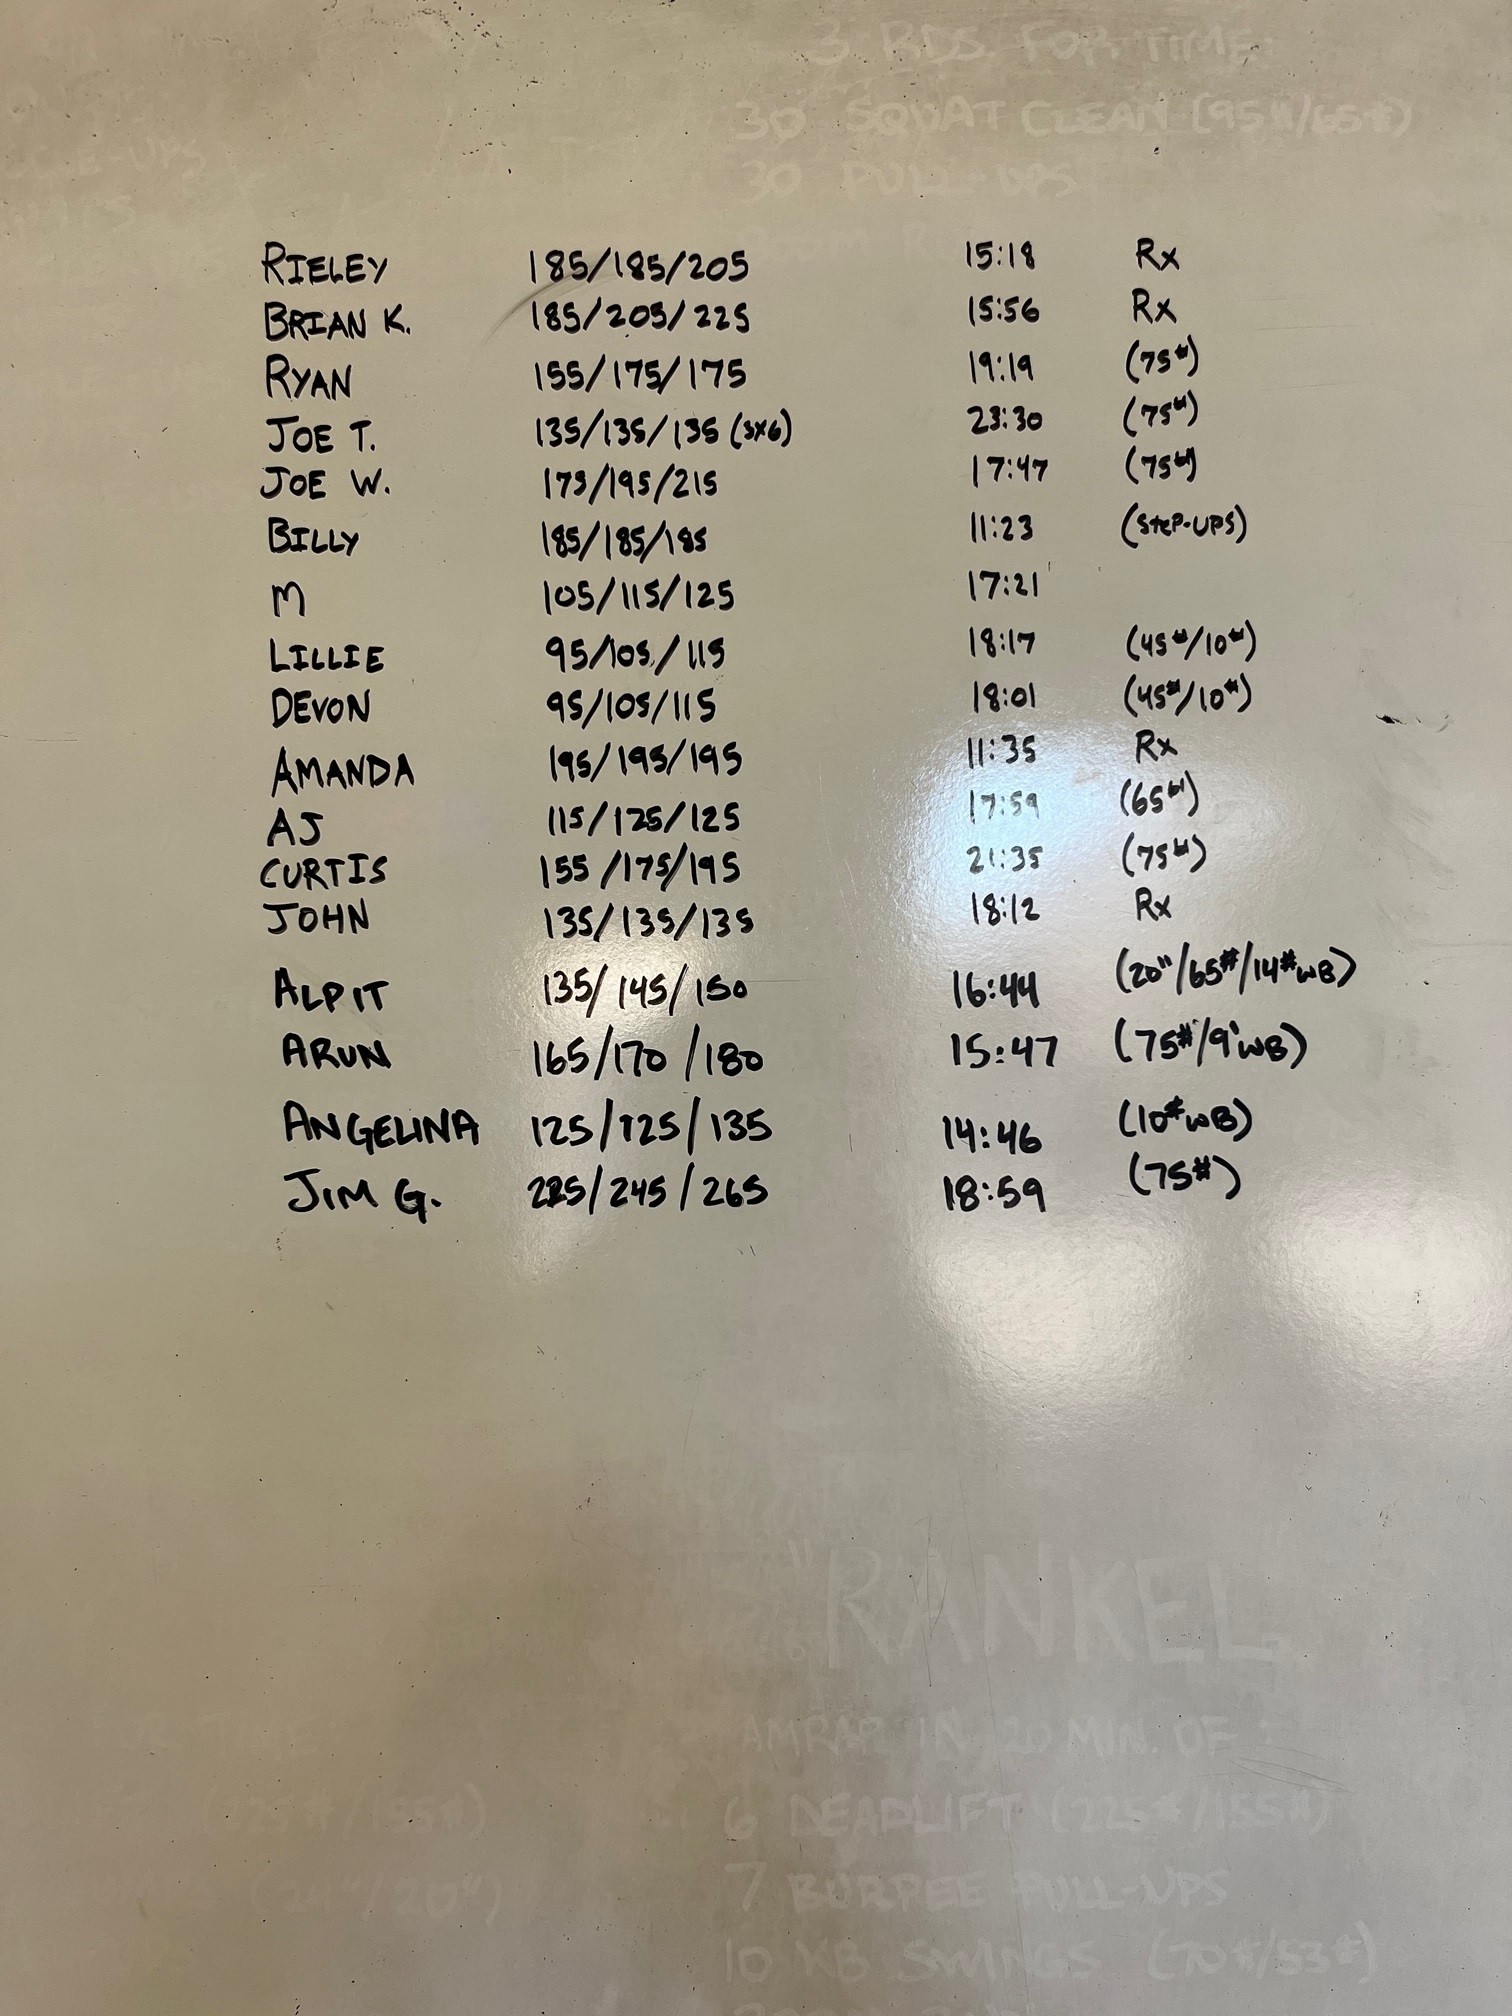 3 RDS. FOR TIME:
30 SQUAT CLEAN (95#/65#)
30 PULL-UPS
RIELEY 185/185/205 15:18 Rx
BRIAN K. 185/205/225 15:56 Rx
RYAN 155/175/175 19:19 (75#)
JOE T. 135/135/135 (3x6) 23:30 (75#)
JOE W. 175/195/215 17:47 (75#)
BILLY 185/185/185 11:23 (STEP-UPS)
M 105/115/125 17:21
LILLIE 95/105/115 18:17 (45#/10#)
DEVON 95/105/115 18:01 (45#/10#)
AMANDA 195/195/195 11:35 Rx
AJ 115/125/125 17:59 (65#)
CURTIS 155/175/195 21:35 (75#)
JOHN 135/135/135 18:12 Rx
ALPIT 135/145/150 16:44 (20"/65#/14#WB)
ARUN 165/170/180 15:47 (75#/9'WB)
ANGELINA 125/125/135 14:46 (10#WB)
JIM G. 225/245/265 18:59 (75#)
"RANKEL
AMRAP IN 20 MIN. OF:
(225#/155#) 6 DEADLIFT (225#/155#)
(24"/20") 7 BURPEE PULL-UPS
10 KB SWINGS (70#/53#)